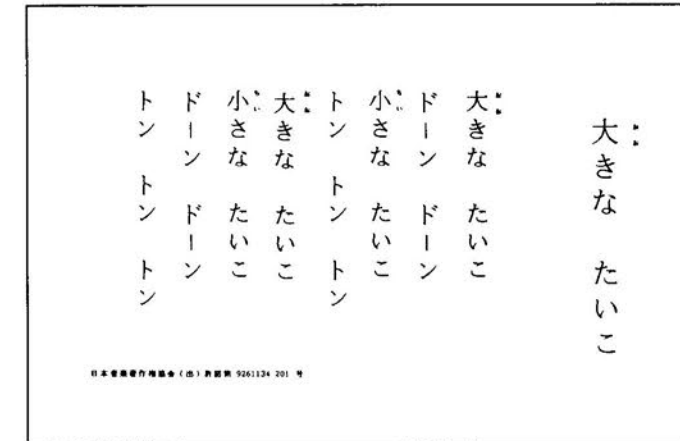 大きな たいこ
大きな たいこ
ドーン ドーン
小さな たいこ
トン トン トン
大きな たいこ
小さな たいこ
ドーン ドーン
トン トン トン
日本音楽著作権協会(出)許諾第 9261134 201 号